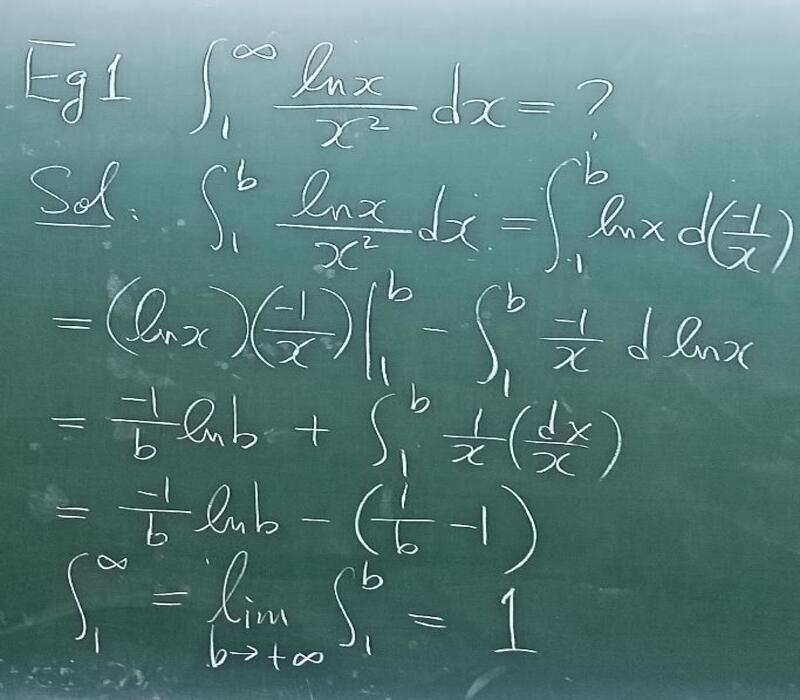 Eg 1 ∫₁^∞ (ln x)/(x²) dx = ?
Sol: ∫₁^b (ln x)/(x²) dx = ∫₁^b ln x d(-1/x)
= (ln x)(-1/x)|₁^b - ∫₁^b (-1/x) d ln x
= (-1/b) ln b + ∫₁^b (1/x)(dx/x)
= (-1/b) ln b - (1/b - 1)
∫₁^∞ = lim_{b→+∞} ∫₁^b = 1